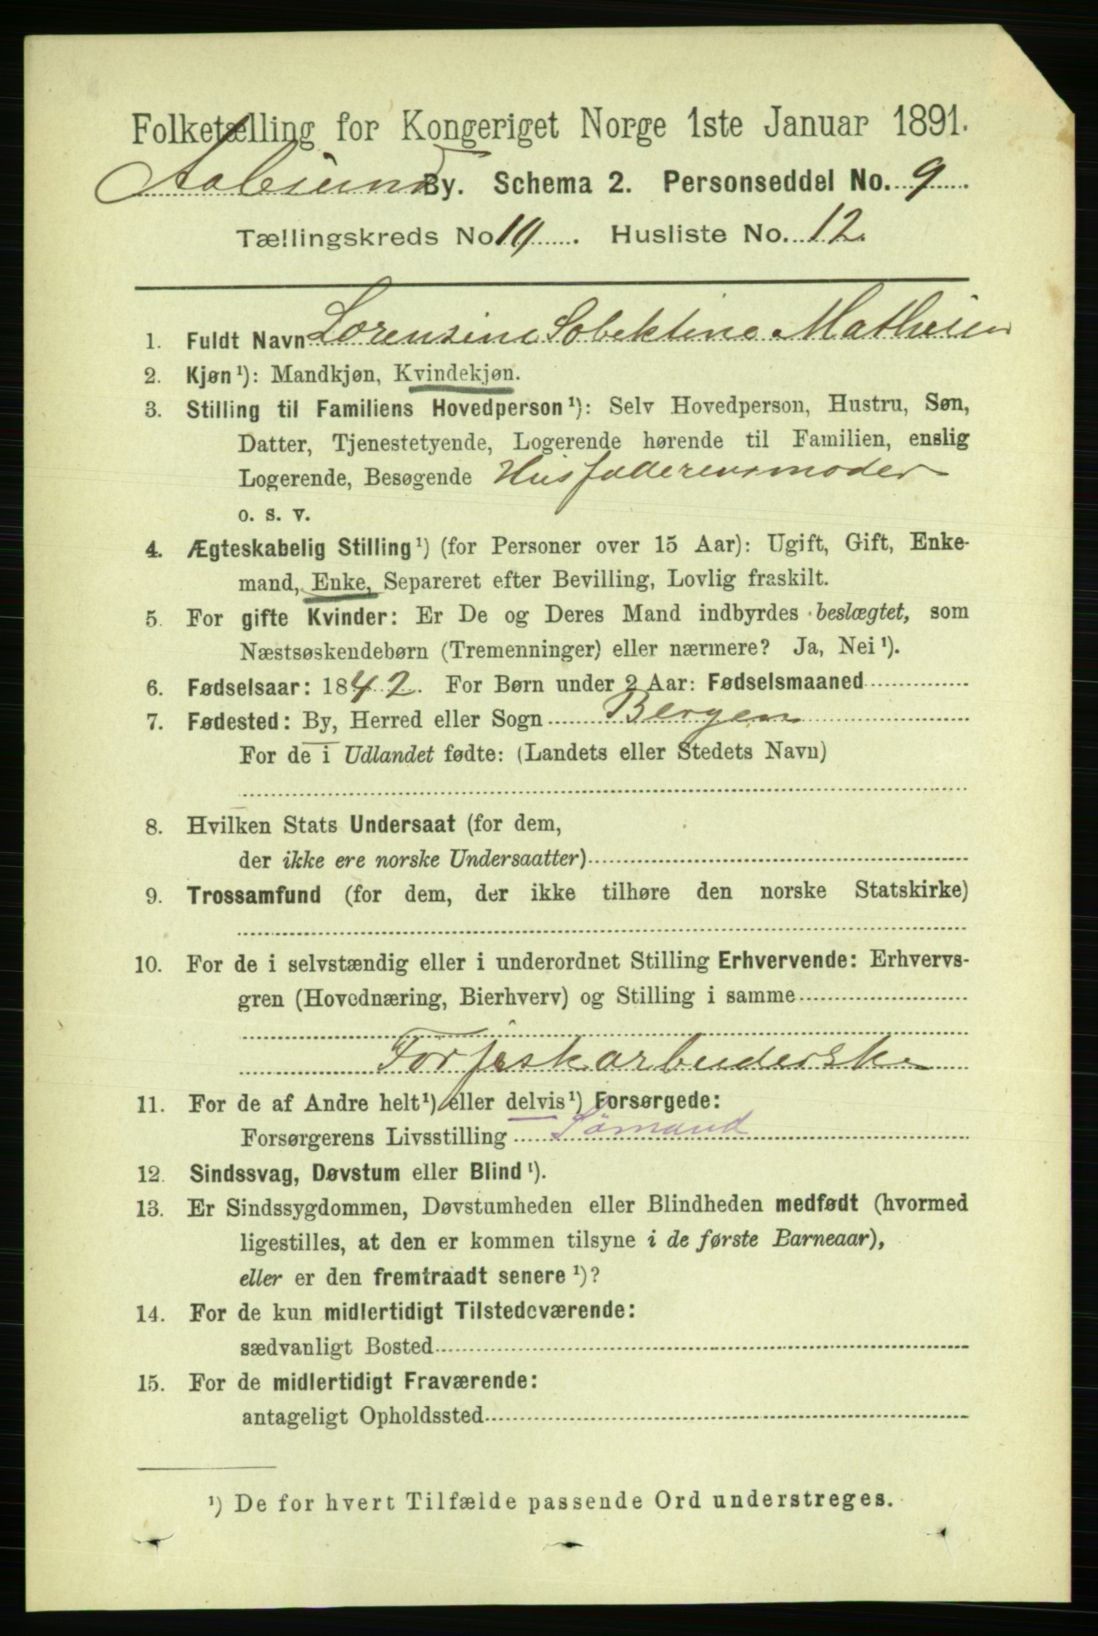 Folketælling for Kongeriget Norge 1ste Januar 1891.
Aalesund By. Schema 2. Personseddel No. 9.
Tællingskreds No. 10. Husliste No. 12.
1. Fuldt Navn Lorensine Sobektine Mathisen
2. Kjøn¹): Mandkjøn, Kvindekjøn.
3. Stilling til Familiens Hovedperson¹): Selv Hovedperson, Hustru, Søn,
Datter, Tjenestetyende, Logerende hørende til Familien, enslig
Logerende, Besøgende Husfaderensmoder
o. s. v.
4. Ægteskabelig Stilling¹) (for Personer over 15 Aar): Ugift, Gift, Enke-
mand, Enke, Separeret efter Bevilling, Lovlig fraskilt.
5. For gifte Kvinder: Er De og Deres Mand indbyrdes beslægtet, som
Næstsøskendebørn (Tremenninger) eller nærmere? Ja, Nei¹).
6. Fødselsaar: 1842. For Børn under 2 Aar: Fødselsmaaned
7. Fødested: By, Herred eller Sogn Bergen
For de i Udlandet fødte: (Landets eller Stedets Navn)
8. Hvilken Stats Undersaat (for dem,
der ikke ere norske Undersaatter)
9. Trossamfund (for dem, der ikke tilhøre den norske Statskirke)
10. For de i selvstændig eller i underordnet Stilling Erhvervende: Erhvervs-
gren (Hovednæring, Bierhverv) og Stilling i samme
Tørfiskarbeiderske
11. For de af Andre helt¹) eller delvis¹) Forsørgede:
Forsørgerens Livsstilling Sømand
12. Sindssvag, Døvstum eller Blind¹).
13. Er Sindssygdommen, Døvstumheden eller Blindheden medfødt (hvormed
ligestilles, at den er kommen tilsyne i de første Barneaar),
eller er den fremtraadt senere¹)?
14. For de kun midlertidigt Tilstedeværende:
sædvanligt Bosted
15. For de midlertidigt Fraværende:
antageligt Opholdssted
¹) De for hvert Tilfælde passende Ord understreges.